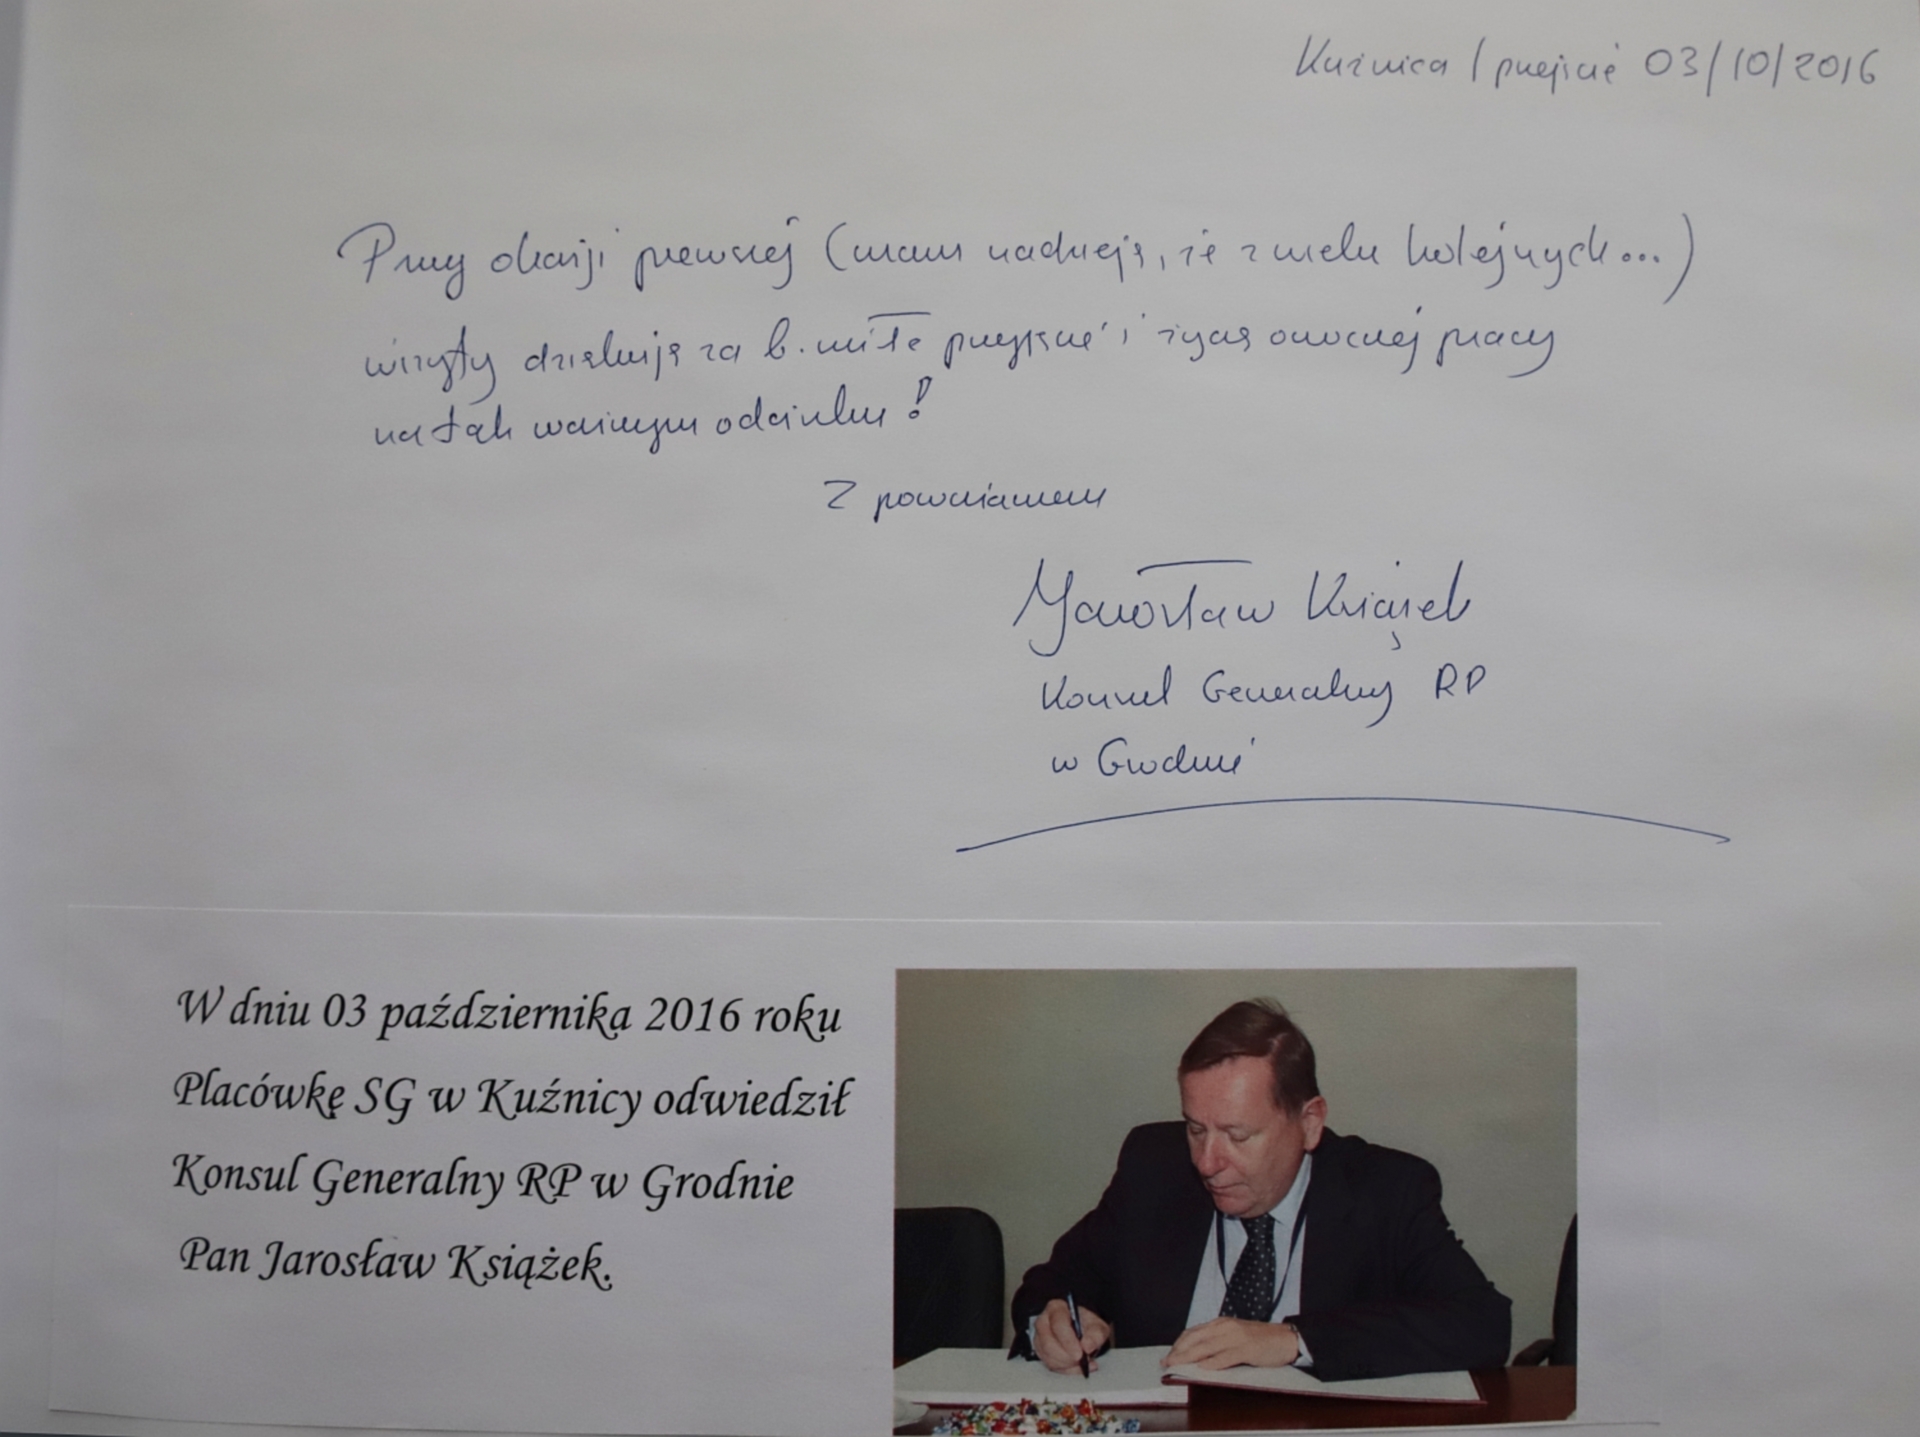 Kuźnica / przejście 03/10/2016
Przy okazji pierwszej (mam nadzieję, że z wielu kolejnych...)
wizyty dziękuję za b. miłe przyjęcie i życzę owocnej pracy
na tak ważnym odcinku!
Z poważaniem
Jarosław Książek
Konsul Generalny RP
w Grodnie
W dniu 03 października 2016 roku
Placówkę SG w Kuźnicy odwiedził
Konsul Generalny RP w Grodnie
Pan Jarosław Książek.